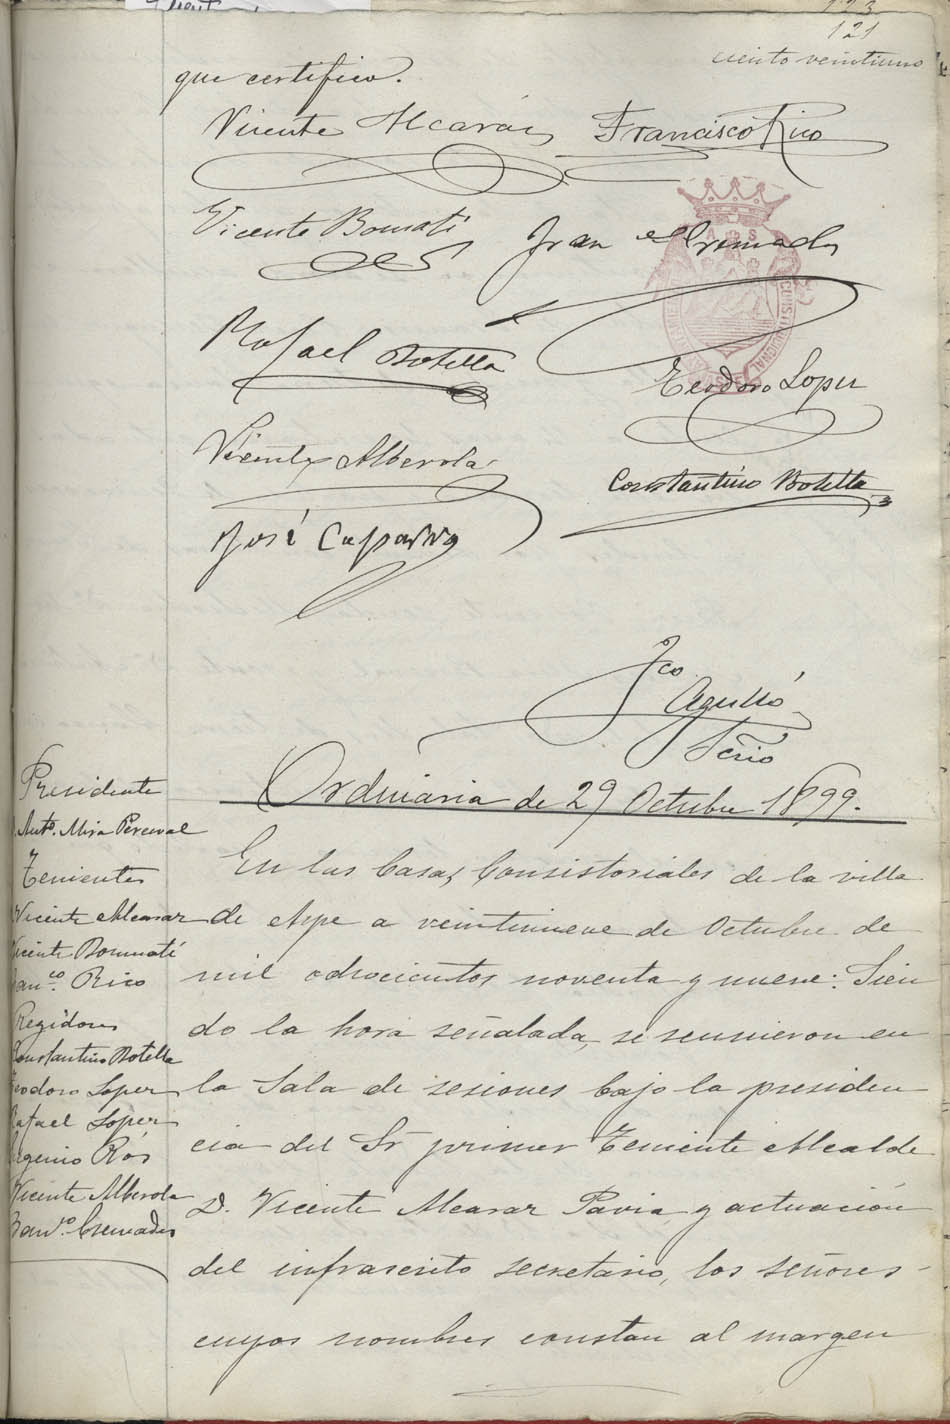 123
121
ciento veintiuno
que certifico.
Vicente Alcaráz Francisco Rico
Vicente Bonmati Fran co Cremades
Rafael Botella
Teodoro Lopez
Vicente Alberola
Constantino Botella
José Caparros
Fco
Agulló
Scrio
Ordinaria de 29 Octubre 1899.
Presidente
Anto. Mira Perceval
Tenientes
Vicente Alcaraz
Vicente Bonmatí
Fanco. Rico
Regidores
Constantino Botella
Teodoro Lopez
Rafael Lopez
Eugenio Rós
Vicente Alberola
Franco. Cremades
En las Casas Consistoriales de la villa
de Aspe a veintinueve de Octubre de
mil ochocientos noventa y nueve: Sien
do la hora señalada, se reunieron en
la Sala de sesiones bajo la presiden
cia del Sr primer Teniente Alcalde
D. Vicente Alcaraz Pavia y actuación
del infrascrito secretario, los señores
cuyos nombres constan al margen